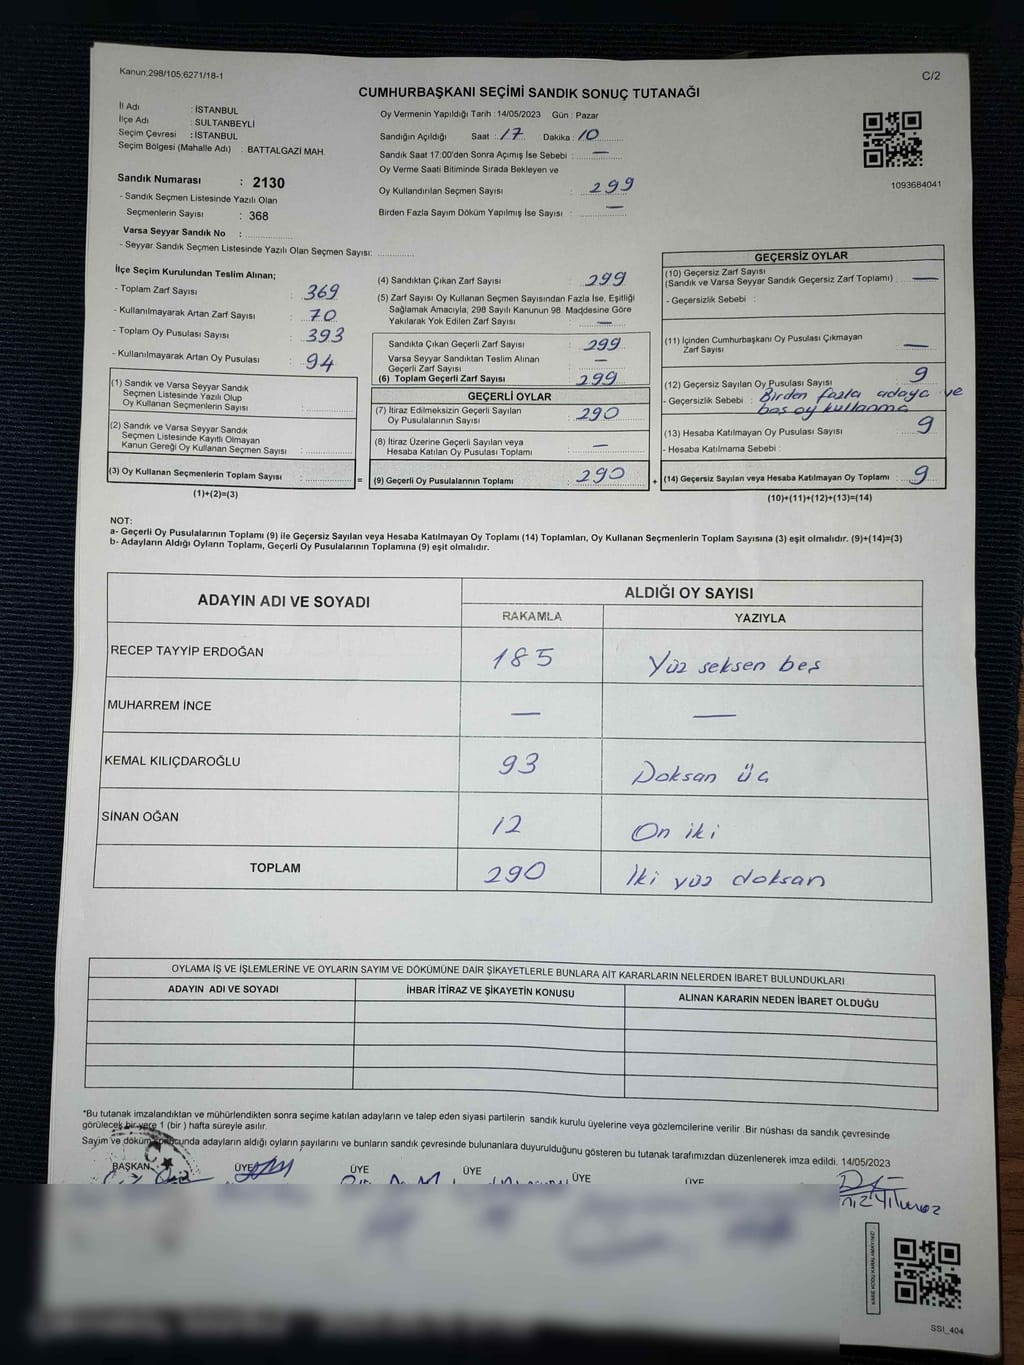 Kanun:298/105,6271/18-1
C/2
CUMHURBAŞKANI SEÇİMİ SANDIK SONUÇ TUTANAĞI
İl Adı : İSTANBUL
İlçe Adı : SULTANBEYLİ
Seçim Çevresi : İSTANBUL
Seçim Bölgesi (Mahalle Adı) : BATTALGAZİ MAH.
Sandık Numarası : 2130
- Sandık Seçmen Listesinde Yazılı Olan
Seçmenlerin Sayısı : 368
Varsa Seyyar Sandık No :
- Seyyar Sandık Seçmen Listesinde Yazılı Olan Seçmen Sayısı:
Oy Vermenin Yapıldığı Tarih :14/05/2023 Gün : Pazar
Sandığın Açıldığı Saat : 17 Dakika : 10
Sandık Saat 17:00'den Sonra Açımış İse Sebebi : —
Oy Verme Saati Bitiminde Sırada Bekleyen ve
Oy Kullandırılan Seçmen Sayısı : 299
Birden Fazla Sayım Döküm Yapılmış İse Sayısı : —
1093684041
İlçe Seçim Kurulundan Teslim Alınan;
- Toplam Zarf Sayısı : 369
- Kullanılmayarak Artan Zarf Sayısı : 70
- Toplam Oy Pusulası Sayısı : 393
- Kullanılmayarak Artan Oy Pusulası : 94
(1) Sandık ve Varsa Seyyar Sandık
Seçmen Listesinde Yazılı Olup
Oy Kullanan Seçmenlerin Sayısı :
(2) Sandık ve Varsa Seyyar Sandık
Seçmen Listesinde Kayıtlı Olmayan
Kanun Gereği Oy Kullanan Seçmen Sayısı :
(3) Oy Kullanan Seçmenlerin Toplam Sayısı :
(1)+(2)=(3)
(4) Sandıktan Çıkan Zarf Sayısı : 299
(5) Zarf Sayısı Oy Kullanan Seçmen Sayısından Fazla İse, Eşitliği
Sağlamak Amacıyla, 298 Sayılı Kanunun 98. Maddesine Göre
Yakılarak Yok Edilen Zarf Sayısı : —
Sandıkta Çıkan Geçerli Zarf Sayısı : 299
Varsa Seyyar Sandıktan Teslim Alınan
Geçerli Zarf Sayısı : —
(6) Toplam Geçerli Zarf Sayısı : 299
GEÇERLİ OYLAR
(7) İtiraz Edilmeksizin Geçerli Sayılan
Oy Pusulalarının Sayısı : 290
(8) İtiraz Üzerine Geçerli Sayılan veya
Hesaba Katılan Oy Pusulası Toplamı : —
= (9) Geçerli Oy Pusulalarının Toplamı : 290 +
GEÇERSİZ OYLAR
(10) Geçersiz Zarf Sayısı
(Sandık ve Varsa Seyyar Sandık Geçersiz Zarf Toplamı) : —
- Geçersizlik Sebebi :
(11) İçinden Cumhurbaşkanı Oy Pusulası Çıkmayan
Zarf Sayısı : —
(12) Geçersiz Sayılan Oy Pusulası Sayısı : 9
- Geçersizlik Sebebi : Birden fazla adaya ve
boş oy kullanma
(13) Hesaba Katılmayan Oy Pusulası Sayısı : 9
- Hesaba Katılmama Sebebi :
(14) Geçersiz Sayılan veya Hesaba Katılmayan Oy Toplamı : 9
(10)+(11)+(12)+(13)=(14)
NOT:
a- Geçerli Oy Pusulalarının Toplamı (9) ile Geçersiz Sayılan veya Hesaba Katılmayan Oy Toplamı (14) Toplamları, Oy Kullanan Seçmenlerin Toplam Sayısına (3) eşit olmalıdır. (9)+(14)=(3)
b- Adayların Aldığı Oyların Toplamı, Geçerli Oy Pusulalarının Toplamına (9) eşit olmalıdır.
ADAYIN ADI VE SOYADI
ALDIĞI OY SAYISI
RAKAMLA YAZIYLA
RECEP TAYYİP ERDOĞAN 185 Yüz seksen beş
MUHARREM İNCE — —
KEMAL KILIÇDAROĞLU 93 Doksan üç
SİNAN OĞAN 12 On iki
TOPLAM 290 İki yüz doksan
OYLAMA İŞ VE İŞLEMLERİNE VE OYLARIN SAYIM VE DÖKÜMÜNE DAİR ŞİKAYETLERLE BUNLARA AİT KARARLARIN NELERDEN İBARET BULUNDUKLARI
ADAYIN ADI VE SOYADI İHBAR İTİRAZ VE ŞİKAYETİN KONUSU ALINAN KARARIN NEDEN İBARET OLDUĞU
*Bu tutanak imzalandıktan ve mühürlendikten sonra seçime katılan adayların ve talep eden siyasi partilerin sandık kurulu üyelerine veya gözlemcilerine verilir .Bir nüshası da sandık çevresinde
görülecek bir yere 1 (bir ) hafta süreyle asılır.
Sayim ve döküm sonucunda adayların aldığı oyların sayılarını ve bunların sandık çevresinde bulunanlara duyurulduğunu gösteren bu tutanak tarafımızdan düzenlenerek imza edildi. 14/05/2023
BAŞKAN ÜYE ÜYE ÜYE ÜYE ÜYE
Yılmaz
SSI_404